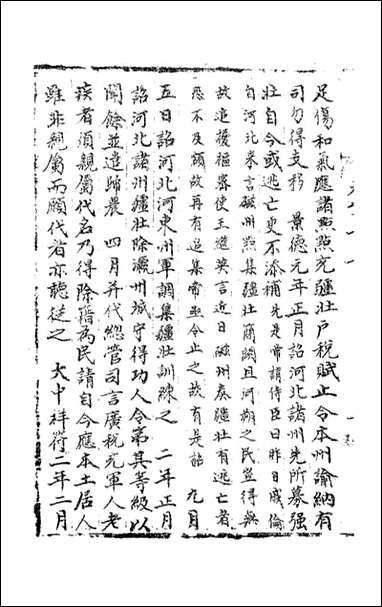 足傷和氣應諸點充疆壯戶稅賦止令本州諭納有
司勿得支移　景德元年正月詔河北諸州先所募强
壯自今或逃亡更不添補先是帝謂侍臣曰昨日戎倫
自河北來言磁州點集疆壯簡閱且河朔之民豈得無
故追擾樞密使王繼英言近日磁州奏疆壯有逃亡者
恐不及額故再有追集帝亟令止之故有是詔　九月
五日詔河北河東州軍調集疆壯訓練之　二年正月
詔河北諸州疆壯除瀛州城守得功人令第其等級以
聞餘並遣歸農　四月并代總管司言廣稅充軍人老
疾者須親屬代名乃得除籍為民請自今應本土居人
雖非親屬而願代者亦聽從之　大中祥符二年二月